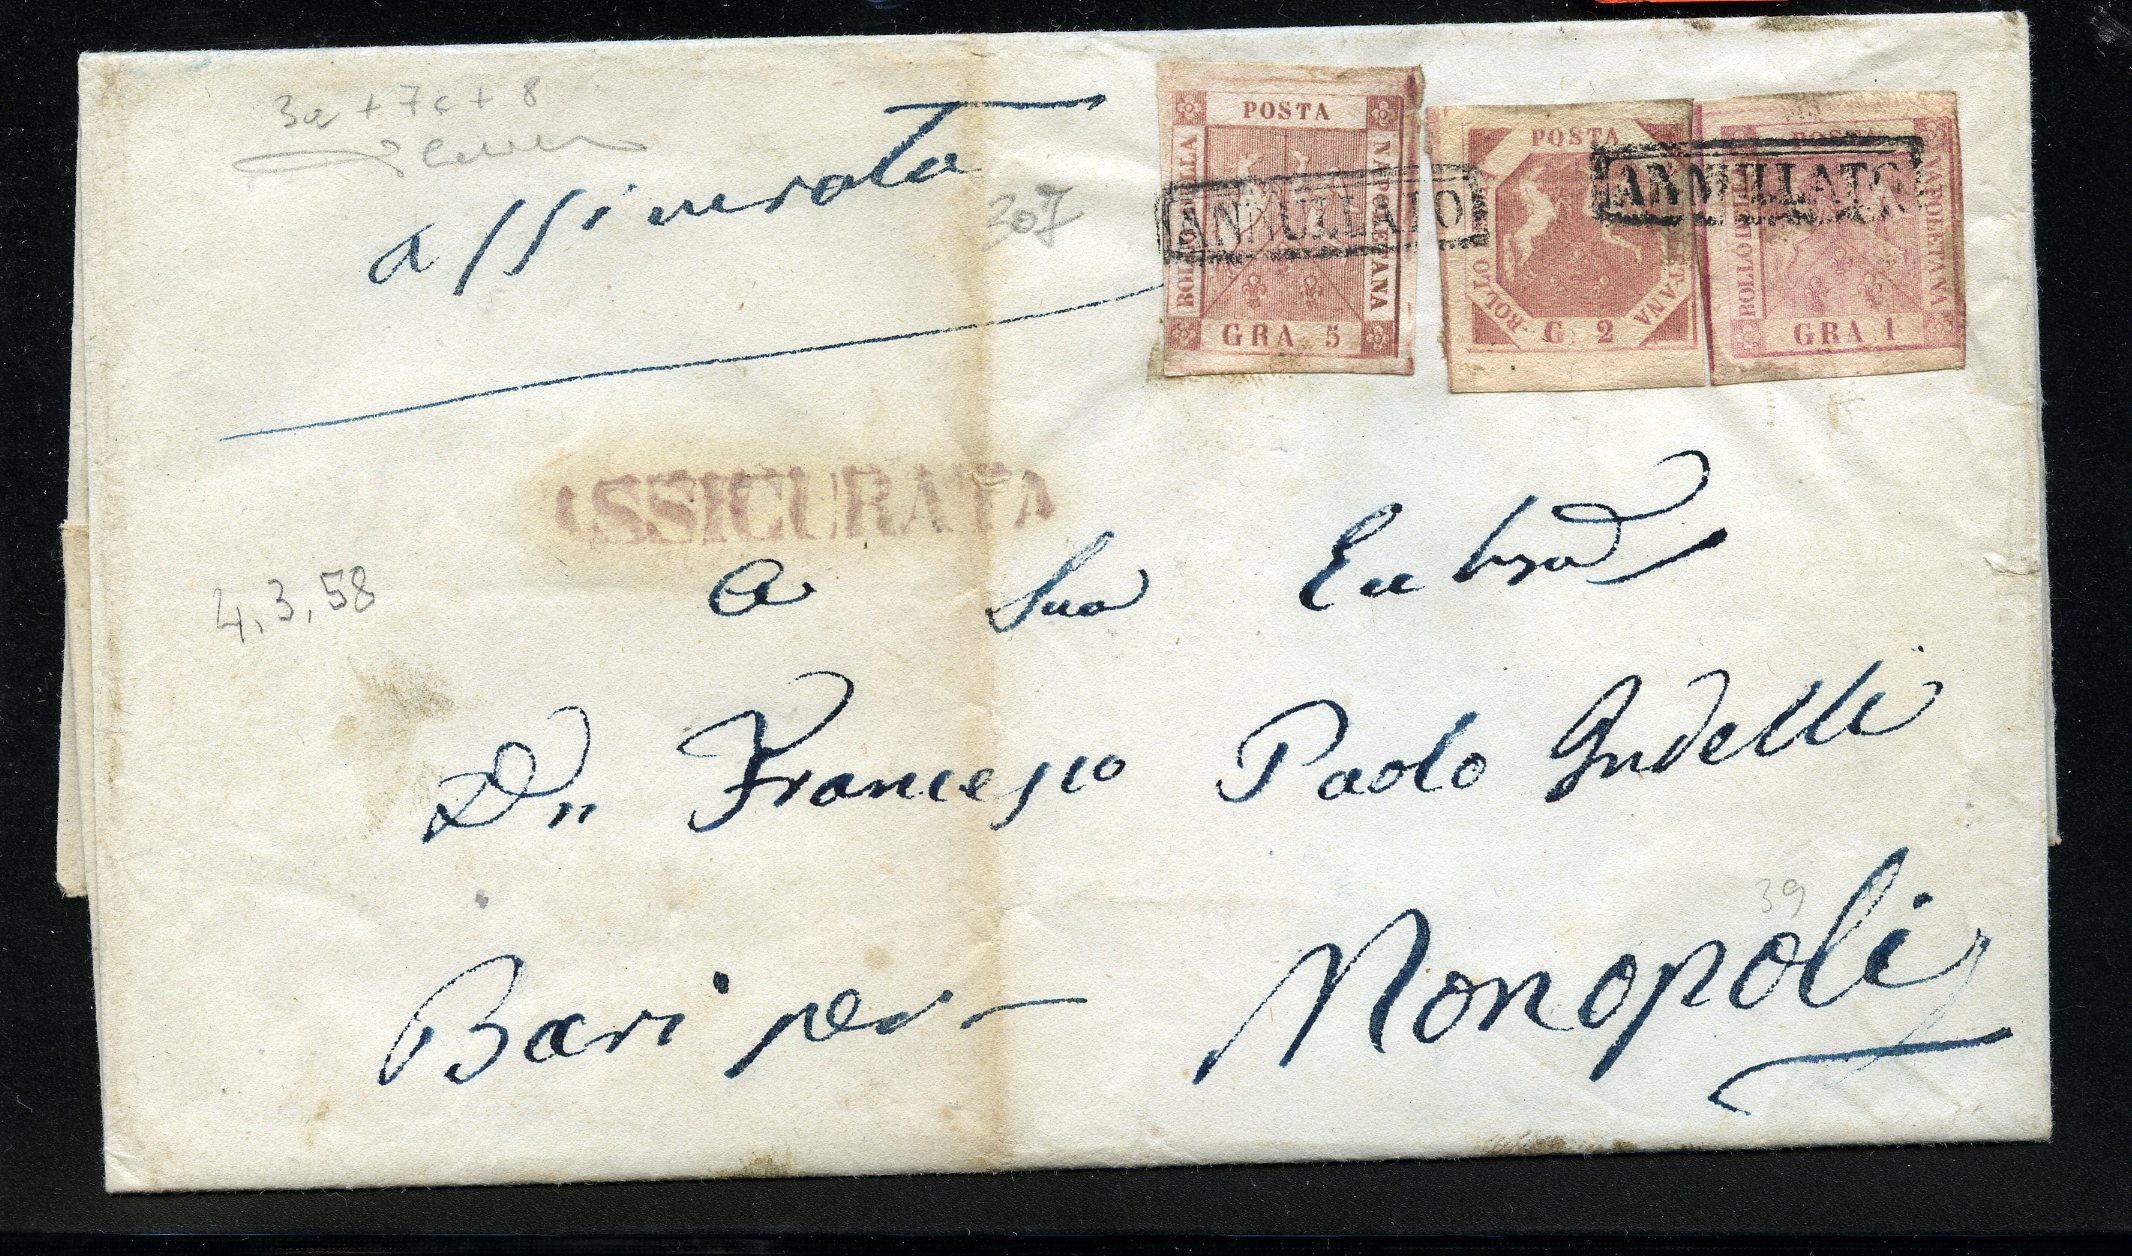 3a + 7c + 8
assicurata
307
POSTA
BOLLO DELLA
NAPOLETANA
GRA 5
ANNULLATO
POSTA
BOLLO
TANA
G. 2
POSTA
BOLLO DELLA
NAPOLETANA
GRA 1
ANNULLATO
ASSICURATA
4,3,58
A Sua
Dn Francesco Paolo Indelli
39
Bari per Monopoli